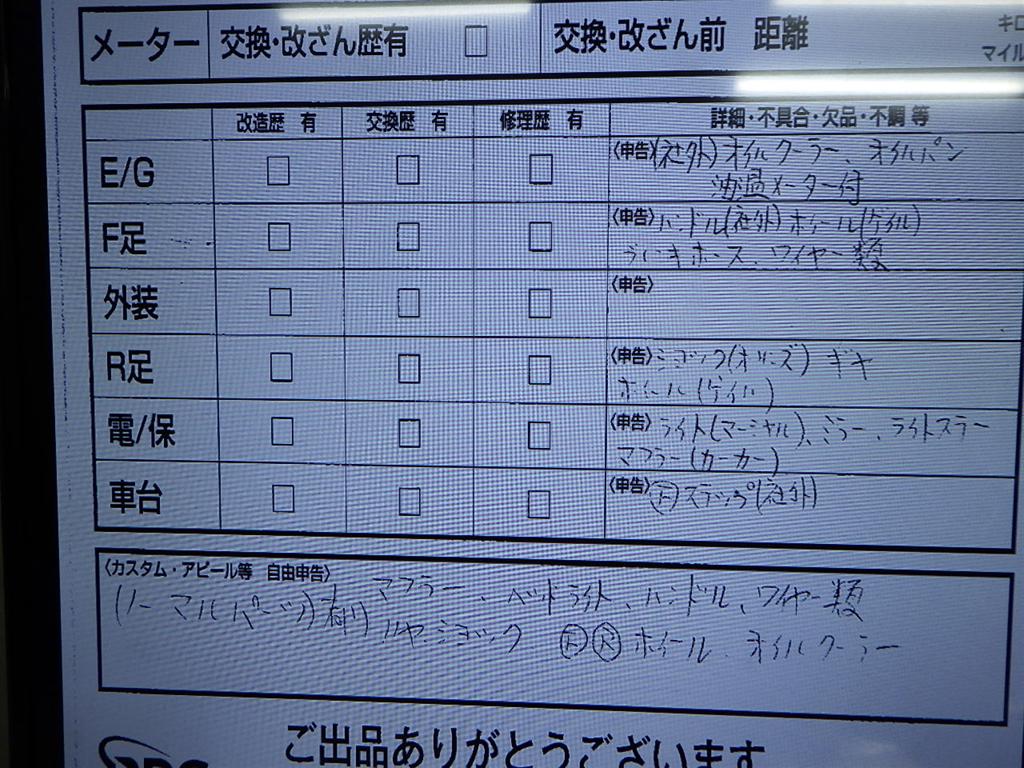 メーター 交換・改ざん歴有 □ 交換・改ざん前 距離 キロ
マイル
改造歴 有 交換歴 有 修理歴 有 詳細・不具合・欠品・不調 等
E/G □ □ □ 〈申告〉(社外) オイルクーラー、オイルパン
油温メーター付
F足 □ □ □ 〈申告〉ハンドル(社外) ホイール(ゲイル)
ブレーキホース、ワイヤー類
外装 □ □ □ 〈申告〉
R足 □ □ □ 〈申告〉ショック(オリーズ) ギヤ
ホイール(ゲイル)
電/保 □ □ □ 〈申告〉ライト(マーシャル)、ミラー、ライトステー
マフラー(カーカー)
車台 □ □ □ 〈申告〉Ⓕステップ(社外)
〈カスタム・アピール等 自由申告〉
(ノーマルパーツ)有り マフラー、ヘッドライト、ハンドル、ワイヤー類
リヤショック ⒻⓇホイール、オイルクーラー
ご出品ありがとうございます